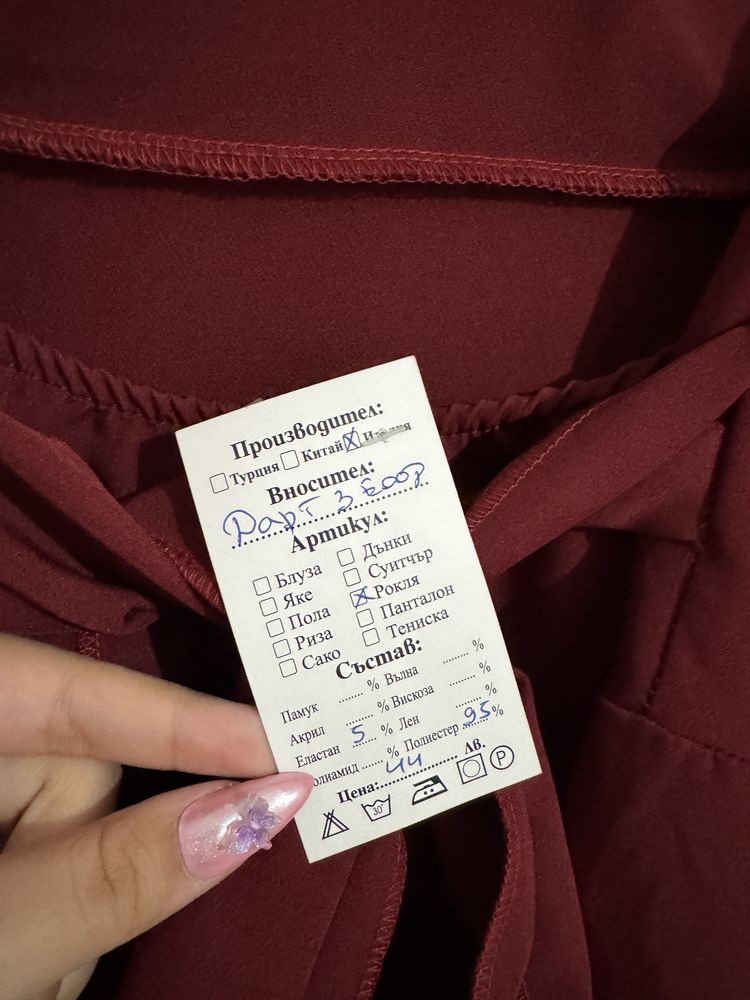 Производител:
Турция Китай Италия
Вносител:
Артикул:
Блуза Дънки
Яке Суитчър
Пола Рокля
Риза Панталон
Сако Тениска
Състав:
Памук ....... % Вълна ....... %
Акрил ....... % Вискоза ....... %
Еластан 5 % Лен ....... %
Полиамид ...... % Полиестер 95 %
Цена: 44 Лв.
30° P